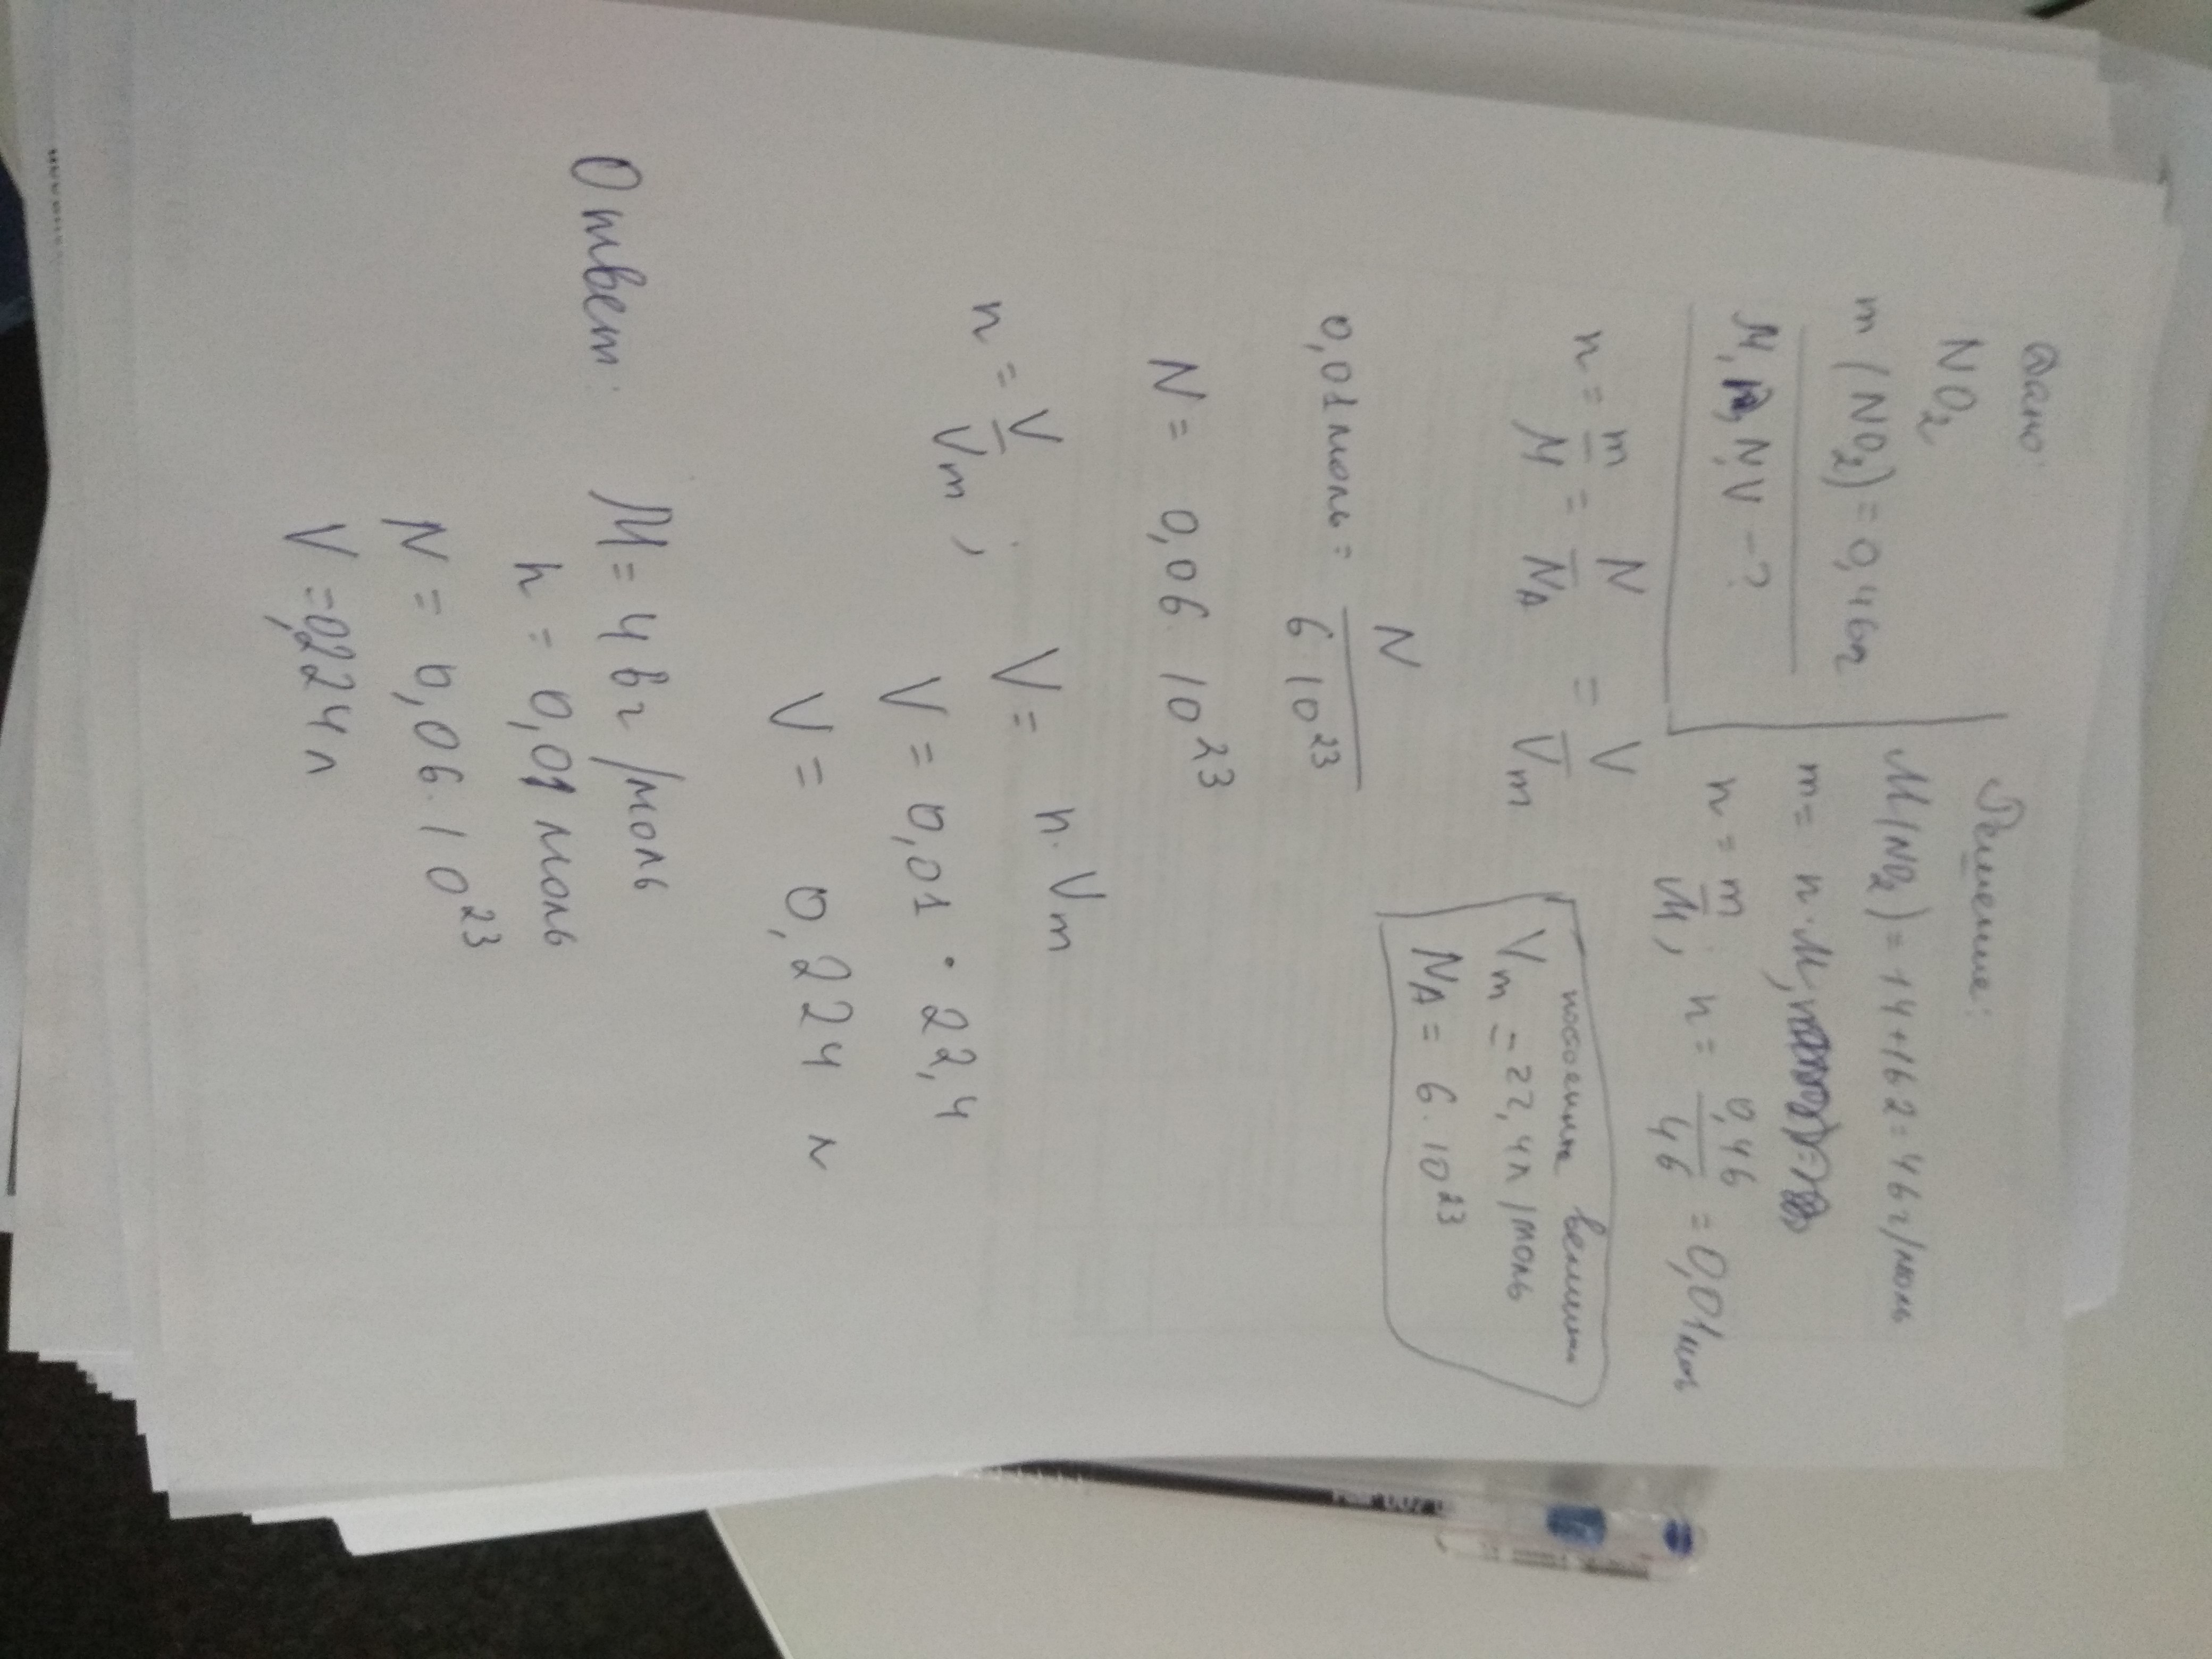 Дано:
NO2
m(NO2) = 0,46г
M, n, N, V - ?
Решение:
M(NO2) = 14+16·2=46г/моль
m = n·M,
n = m/M; n = 0,46/46 = 0,01моль
n = m/M = N/NA = V/Vm
Vm = 22,4л/моль
NA = 6·10²³
0,01моль = N/6·10²³
N = 0,06·10²³
n = V/Vm; V = n·Vm
V = 0,01 · 22,4
V = 0,224 л
Ответ: M = 46г/моль
n = 0,01 моль
N = 0,06·10²³
V = 0,224л